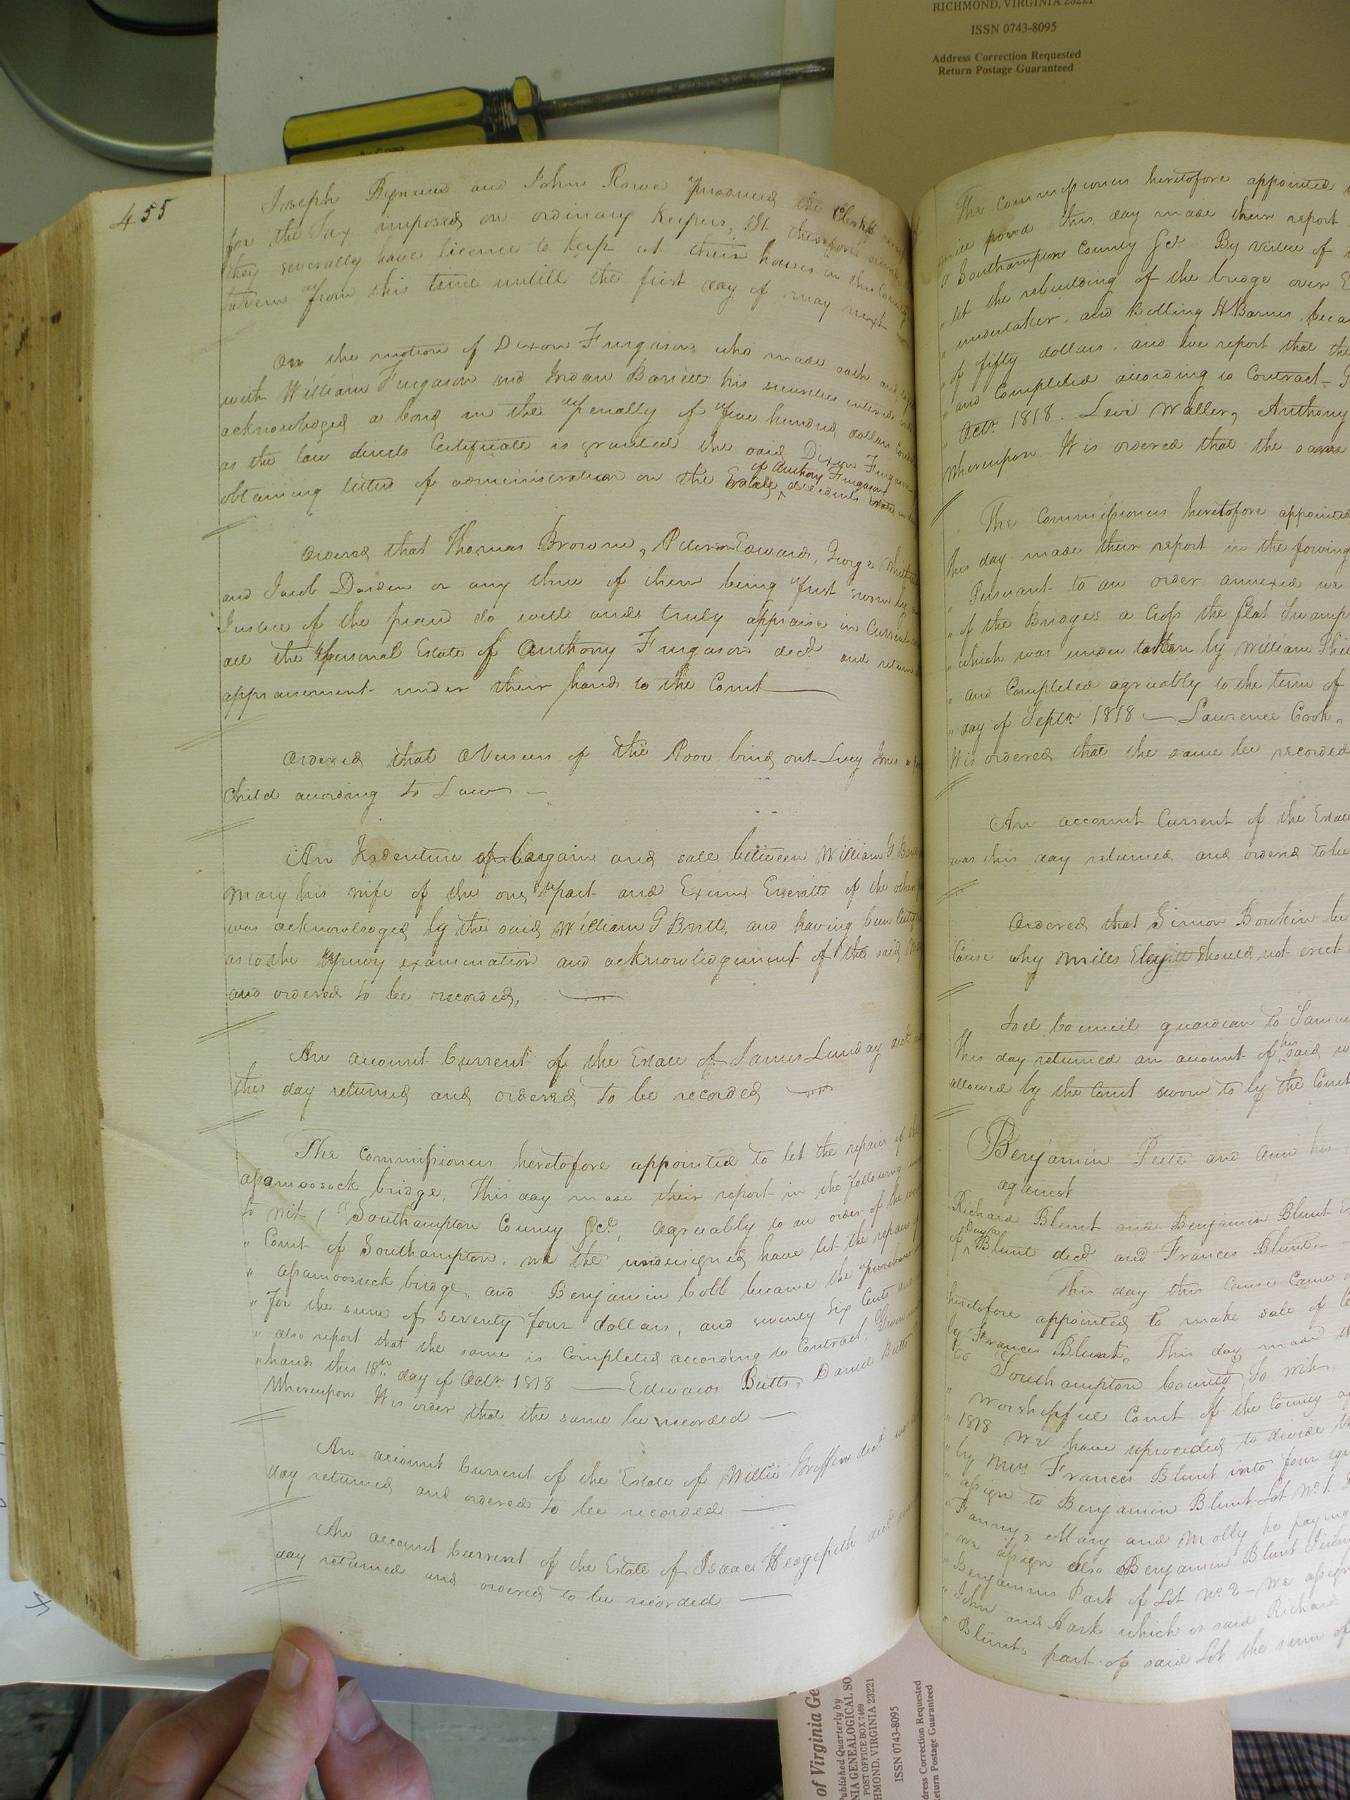 RICHMOND, VIRGINIA 23221
ISSN 0743-8095
Address Correction Requested
Return Postage Guaranteed
455
Joseph and John Rowe produced the Clerks
for the Tax imposed on ordinary keepers, It therefore
they severally have licence to keep at their houses in this County
taverns from this time untill the first day of may next
On the motion of Dixon Furgason who made oath and
with William Furgason and Jordan Barrett his securities entered into
acknowledged a bond in the penalty of five hundred dollars
as the law directs Certificate is granted the said Dixon Furgason
obtaining letters of administration on the Estate of Anthony Furgason decedents
Ordered that Thomas Browne, Peterson Edwards, George
and Jacob Darden or any three of them being first sworn
Justice of the peace do well and truly appraise in Current
all the personal Estate of Anthony Furgason decd and return
appraisement under their hands to the Court
Ordered that Overseers of the Poor bind out Lucy Jones a
Child according to Law
An Indenture of bargain and sale between William G
Mary his wife of the one part and Exum Everitts of the other
was acknowledged by the said William G Britt, and having been
as to the privy examination and acknowledgement of the said
and ordered to be recorded,
An account Current of the Estate of James Lunday decd
this day returned and ordered to be recorded
The Commissioners heretofore appointed to let the repairs of
apamoosock bridge, This day made their report in the following
to wit ( Southampton County &Ct, agreeably to an order of the
" Court of Southampton, we the undersigned have let the repair
" apamoosuck bridge, and Benjamin Cobb became the
" for the sum of seventy four dollars, and seventy six Cents
" also report that the same is Completed according to Contract, Given
" hands this 18th day of Octr 1818 Edwards Butts, Daniel Butts
Whereupon It is order that the same be recorded
An account Current of the Estate of Willie Griffin decd
day returned and ordered to be recorded
An account Current of the Estate of Isaac Hedgepeth decd
day returned and ordered to be recorded
The Commissioners heretofore appointed
this day made their report
Southampton County &Ct By virtue of
let the rebuilding of the bridge over
" undertaker, and Bolling H Barnes
" of fifty dollars, and we report that the
" and Completed according to Contract
" Octr 1818. Levi Waller, Anthony
Whereupon It is ordered that the same
The Commissioners heretofore appointed
this day made their report in the
" Pursuant to an order annexed we
" of the Bridges a Cross the flat Swamp
" which was under taken by William
" and Completed agreeably to the term of
" day of Septr 1818 Lawrence Cook
It is ordered that the same be recorded
An account Current of the Estate
was this day returned and ordered to be
Ordered that Simon Bowkin be
Cause why Miles should not erect
Joel Council guardian to
This day returned an account of his said
allowed by the Court sworn to by the Court
Benjamin Peete and Ann his
against
Richard Blunt and Benjamin Blunt
of Blunt decd and Frances Blunt
This day this cause Came
heretofore appointed to make sale of
by Frances Blunt, This day made
Southampton County To wit,
" Worshipfull Court of the County
" 1818 We have proceeded to divide
" by Mrs Frances Blunt into four
" assign to Benjamin Blunt Lot No 1.
" Fanny, Mary and Molly he paying
" we assign also Benjamin Blunt
" Benjamins Part of Lot No 2 We assign
" John and Hark which is said Richard
" Blunts part of said Lot the sum of
of Virginia Ge
Published Quarterly by
NIA GENEALOGICAL SO
POST OFFICE BOX 7469
HMOND, VIRGINIA 23221
ISSN 0743-8095
dress Correction Requested
Return Postage Guaranteed